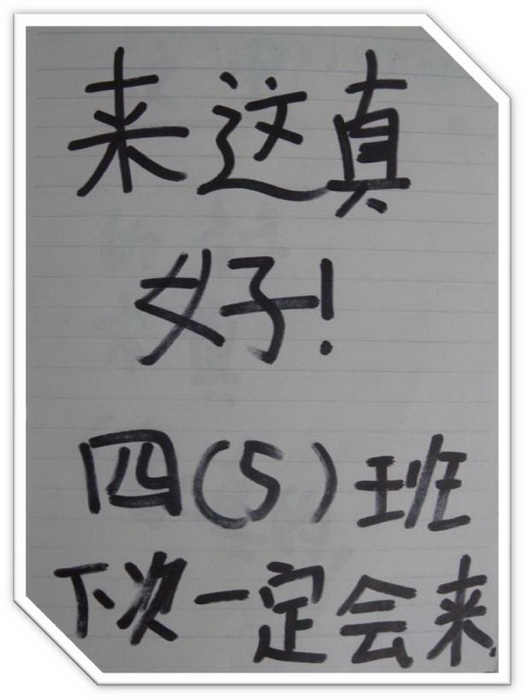 来这真
好!
四(5)班
下次一定会来.